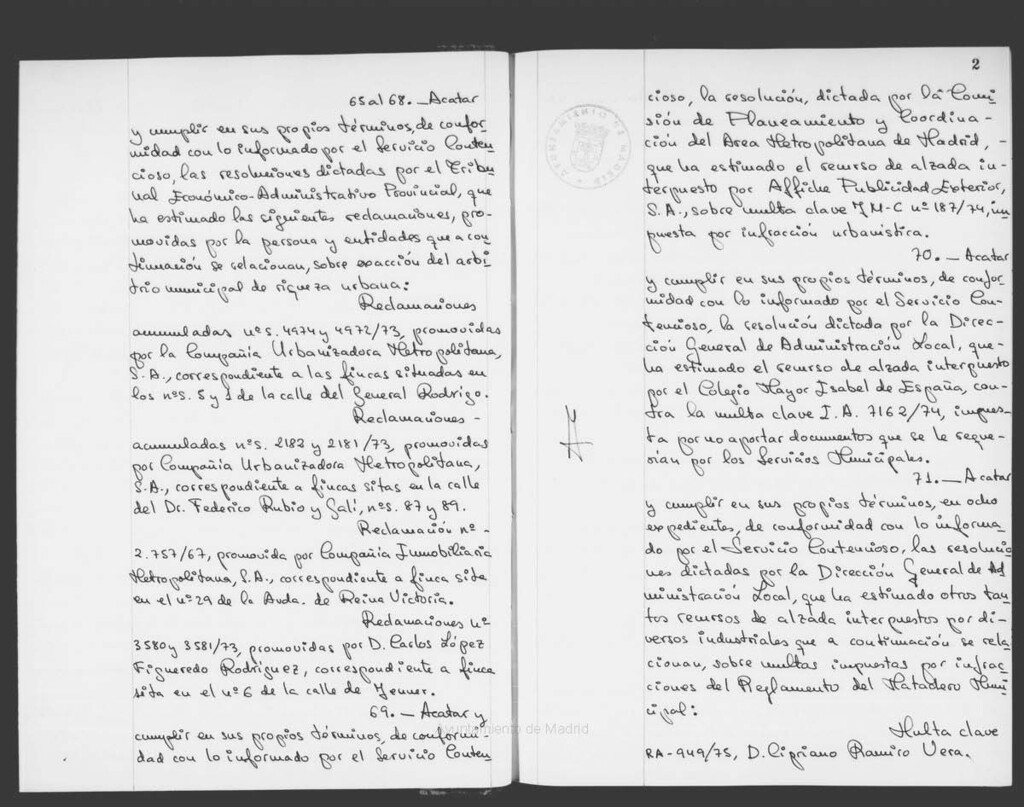 65 al 68. — Acatar
y cumplir en sus propios términos, de confor
midad con lo informado por el Servicio Conten
cioso, las resoluciones dictadas por el Tribu
nal Económico-Administrativo Provincial, que
ha estimado las siguientes reclamaciones, pro-
movidas por la persona y entidades que a con
tinuación se relacionan, sobre exacción del arbi
trio municipal de riqueza urbana:
Reclamaciones
acumuladas nºs. 4974 y 4972/73, promovidas
por la Compañía Urbanizadora Metropolitana,
S.A., correspondiente a las fincas situadas en
los nºs. 8 y de la calle del General Rodrigo.
Reclamaciones -
acumuladas nºs. 2182 y 2181/73, promovidas
por Compañía Urbanizadora Metropolitana,
S.A., correspondiente a fincas sitas en la calle
del Dr. Federico Rubio y Galí, nºs. 87 y 89.
Reclamación nº -
2.757/67, promovida por Compañía Inmobiliaria
Metropolitana, S.A., correspondiente a finca sita
en el nº 29 de la Avda. de Reina Victoria.
Reclamaciones nº
3580 y 3581/73, promovidas por D. Carlos López
Figueredo Rodríguez, correspondiente a finca
sita en el nº 6 de la calle de Jenner.
69. — Acatar y
cumplir en sus propios términos, de conformi-
dad con lo informado por el Servicio Conten
Ayuntamiento de Madrid
2
AYUNTAMIENTO DE MADRID
cioso, la resolución, dictada por la Comi
sión de Planeamiento y Coordina -
ción del Area Metropolitana de Madrid, -
que ha estimado el recurso de alzada in-
terpuesto por Affiche Publicidad Exterior,
S.A., sobre multa clave J M-C nº 187/74, im
puesta por infracción urbanística.
70. — Acatar
y cumplir en sus propios términos, de confor
midad con lo informado por el Servicio Con-
tencioso, la resolución dictada por la Direc-
ción General de Administración Local, que-
ha estimado el recurso de alzada interpuesto
por el Colegio Mayor Isabel de España, con-
tra la multa clave I. A. 7162/74, impues-
ta por no aportar documentos que se le reque-
rían por los Servicios Municipales.
71. — Acatar
y cumplir en sus propios términos, en ocho
expedientes, de conformidad con lo informa-
do por el Servicio Contencioso, las resolucio
nes dictadas por la Dirección General de Ad
ministración Local, que ha estimado otros tan
tos recursos de alzada interpuestos por di-
versos industriales que a continuación se rela
cionan, sobre multas impuestas por infrac-
ciones del Reglamento del Matadero Muni
cipal:
Multa clave
RA-949/75, D. Cipriano Ramiro Vera.